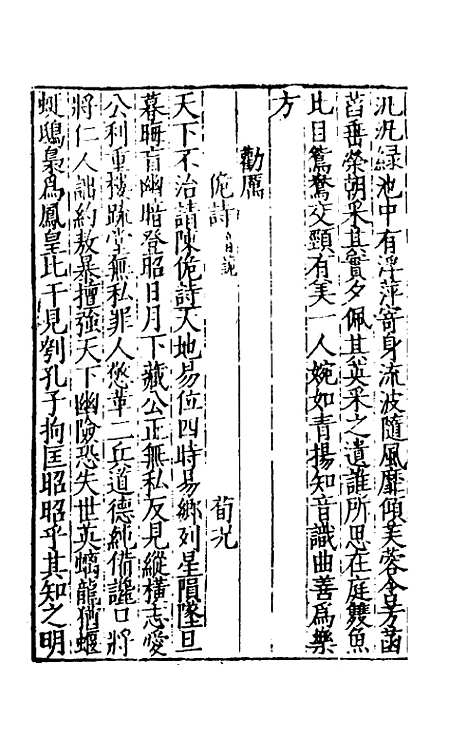 汎汎綠池中有浮萍寄身流波隨風靡傾芙蓉含芳菡
萏垂榮朝采其實夕佩其英采之遺誰所思在庭雙魚
比目鴛鴦交頸有美一人婉如青揚知音識曲善爲樂
方
勸厲
佹詩 荀況
天下不治請陳佹詩天地易位四時易鄉列星隕墜旦
暮晦盲幽暗登昭日月下藏公正無私反見縱橫志愛
公利重樓疏堂無私罪人憼革二兵道德純備讒口將
將仁人詘約敖暴擅強天下幽險恐失世英螭龍爲蝘
蜓鴟梟爲鳳皇比干見刳孔子拘匡昭昭乎其知之明